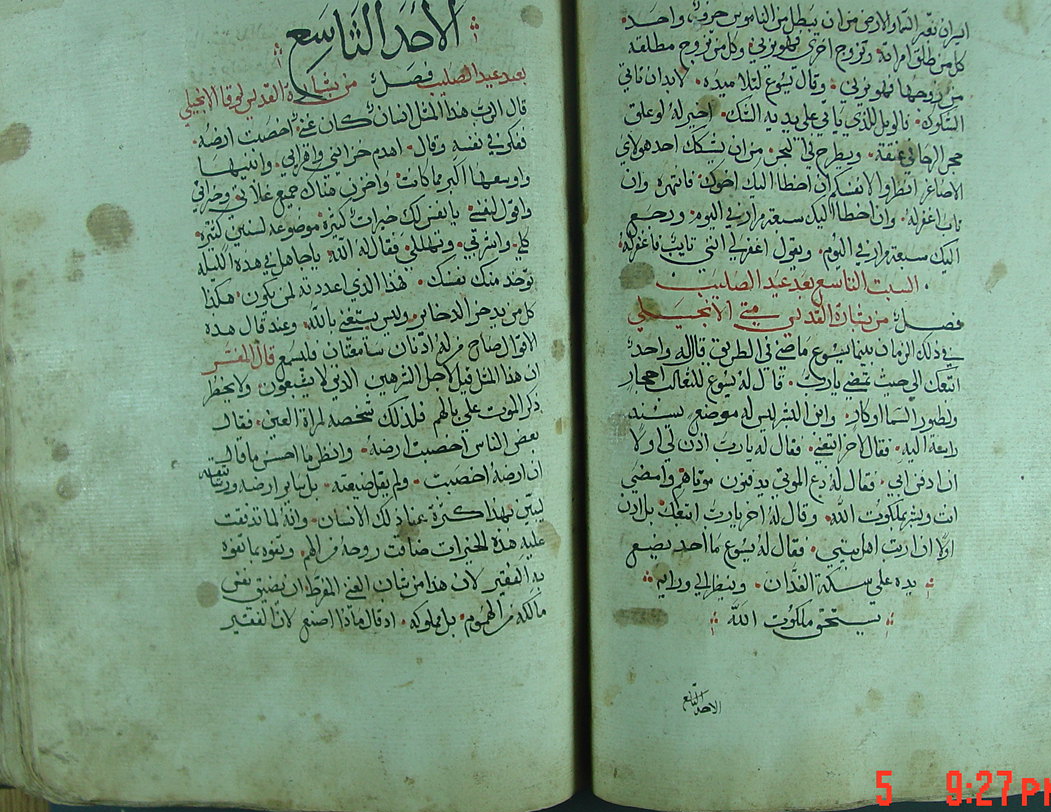 ايسران تعبر السما والارض من ان يبطل من الناموس حرف واحد
كل من طلق امراته وتزوج اخرى فهو يزني وكل من تزوج مطلقه
من زوجها فهو يزني وقال يسوع لتلاميذه لابد ان تاتي
الشكوك فالويل للذي ياتي على يديه الشك اخير له لو علق
حجر الرحا في عنقه ويطرح في البحر من ان يشكك احد هولاي
الاصاغر انظروا لانفسكم ان اخطا اليك اخوك فانتهره وان
تاب اغفر له وان اخطا اليك سبعة مرار في اليوم ورجع
اليك سبعة مرار في اليوم ويقول اغفر لي انني تايب فاغفر له
السبت التاسع بعد عيد الصليب
فصل من بشارة القديس متى الانجيلي
في ذلك الزمان بينما يسوع ماضي في الطريق قال له واحد
اتبعك الى حيث تمضي يا رب قال له يسوع للثعالب احجار
ولطيور السما اوكار وابن البشر ليس له موضع يسند
راسه اليه فقال لاخر اتبعني فقال له يا رب اذن لي اولا
ان ادفن ابي فقال له دع الموتى يدفنون موتاهم وامضي
انت وبشر بملكوت الله وقال له اخر يا رب اتبعك بل اذن
اولا ان ارتب اهل بيتي فقال له يسوع ما احد يضع
يده على سكة الفدان وينظر الى ورايه
يستحق ملكوت الله
الاحد التاسع
الاحد التاسع
بعد عيد الصليب فصل من بشارة القديس لوقا الانجيلي
قال الرب هذا المثل انسان كان غني اخصبت ارضه
ففكر في نفسه وقال اهدم خزايني واهرايي وابنيها
واوسعها اكبر مما كانت واخزن هناك جميع غلاتي وخيراتي
واقول لنفسي يا نفس لك خيرات كثيره موضوعه لسنين كثيره
كلي واشربي وتهللي فقال له الله يا جاهل في هذه الليله
توخذ منك نفسك فهذا الذي اعددته لمن يكون هكذا
كل من يدخر الدخاير وليس يستغني بالله وعند قال هذه
الاقوال صاح من له اذنان سامعتان فليسمع قال المفسر
ان هذا المثل قيل لاجل الشرهين الذين لا يشبعون ولا يخطر
ذكر الموت على بالهم فلذلك شخصه لمراة العين فقال
بعض الناس اخصبت ارضه وانظر ما احسن ما قال
ان ارضه اخصبت ولم يقل ضيعته بل ساير ارضه ورستاقه
ليبين بهذا كثرة غنا ذلك الانسان وانه لما تدفقت
عليه هذه الخيرات ضاقت روحه من الهم وتفوه بما تفوه
به الفقير لان هذا من شان الغني المفرط ان يضيق نفس
مالكه من الهموم بل مملوكه اذ قال ماذا اصنع لان الفقير
5 9:27 PM